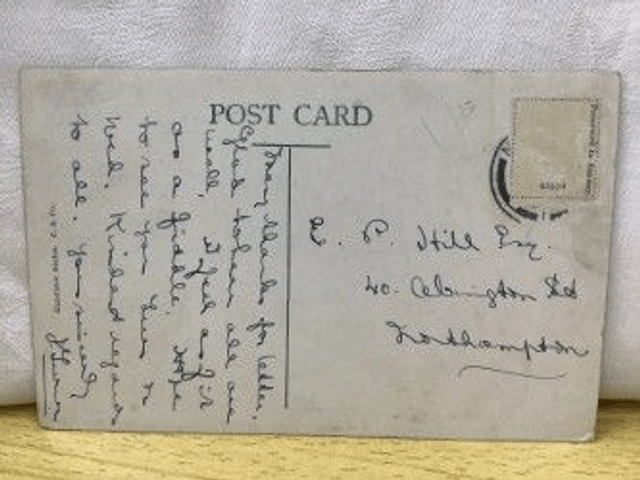 POST CARD
Many thanks for letter.
Glad to hear all are
well, I feel as fit
as a fiddle. Hope
to see you Tues or
Wed. Kindest regards
to all. Yours sincerely
E. P. Hill Esq.
40. Abington Rd
Northampton